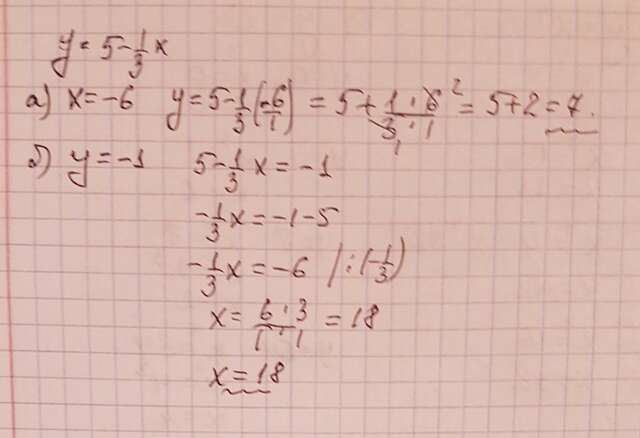 y = 5 - 1/3 x
а) x = -6 y = 5 - 1/3 (-6/1) = 5 + 1·6/3·1 = 5 + 2 = 7.
б) y = -1 5 - 1/3 x = -1
-1/3 x = -1 - 5
-1/3 x = -6 /:(-1/3)
x = 6·3/1·1 = 18
x = 18